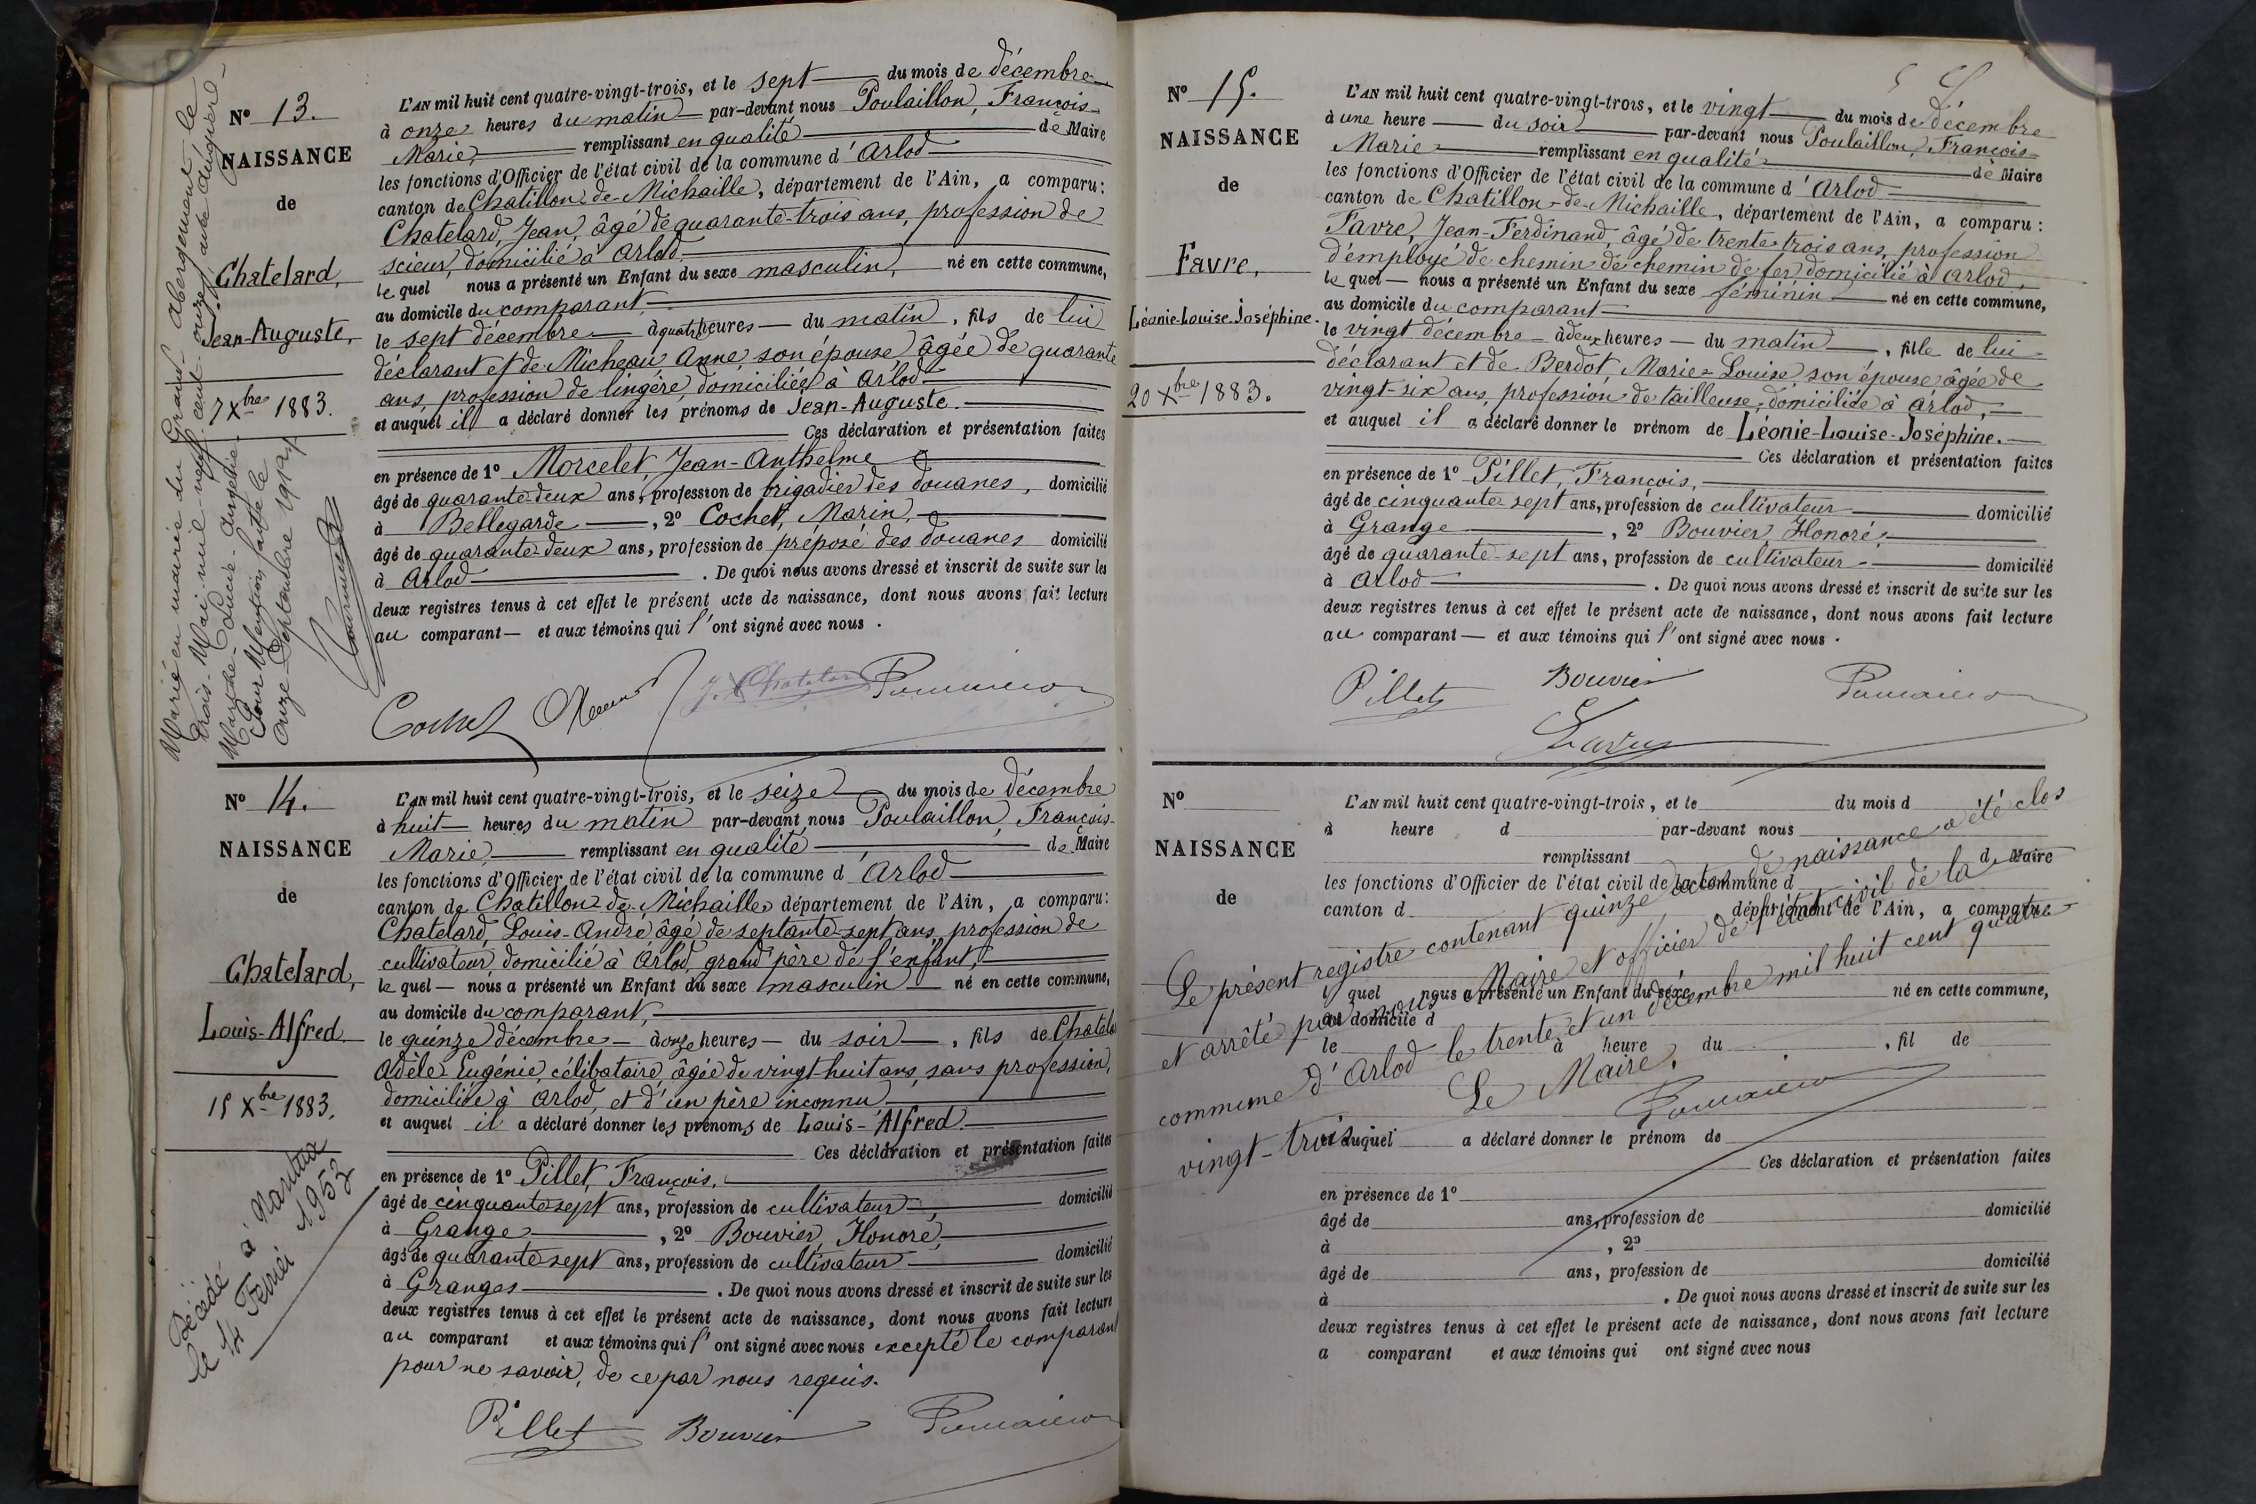 Nº 13.
NAISSANCE
de
Chatelard,
Jean-Auguste,
7 Xbre 1883.
Marié en mairie du Grand-Abergement le
trois Mai mil-neuf-cent-onze, avec Auguere-
Marthe-Lucie-Angelie.
Pour Mention faite le
onze Septembre 1912
L'AN mil huit cent quatre-vingt-trois, et le sept du mois de décembre
à onze heures du matin par-devant nous Poulaillon, François-
Marie, remplissant en qualité de Maire
les fonctions d'Officier de l'état civil de la commune d'Arlod
canton de Chatillon-de-Michaille, département de l'Ain, a comparu :
Chatelard, Jean, âgé de quarante-trois ans, profession de
scieur, domicilié à Arlod,
le quel nous a présenté un Enfant du sexe masculin, né en cette commune,
au domicile du comparant,
le sept décembre à quatre heures du matin, fils de lui
déclarant et de Micheau Anne son épouse, âgée de quarante
ans, profession de lingère, domiciliée à Arlod
et auquel il a déclaré donner les prénoms de Jean-Auguste.
Ces déclaration et présentation faites
en présence de 1º Morcelet, Jean-Anthelme
âgé de quarante-deux ans, profession de brigadier des douanes, domicilié
à Bellegarde, 2º Cochet, Marin,
âgé de quarante-deux ans, profession de préposé des douanes domicilié
à Arlod. De quoi nous avons dressé et inscrit de suite sur les
deux registres tenus à cet effet le présent acte de naissance, dont nous avons fait lecture
au comparant et aux témoins qui l'ont signé avec nous.
Cochet J. Chatelar Poulaillon
Nº 14.
NAISSANCE
de
Chatelard,
Louis-Alfred.
15 Xbre 1883.
Décédé à Nantua
le 14 Fevrier 1953
L'AN mil huit cent quatre-vingt-trois, et le seize du mois de décembre
à huit heures du matin par-devant nous Poulaillon, François-
Marie, remplissant en qualité de Maire
les fonctions d'Officier de l'état civil de la commune d'Arlod
canton de Chatillon-de-Michaille, département de l'Ain, a comparu :
Chatelard, Louis-André âgé de septante-sept ans, profession de
cultivateur, domicilié à Arlod, grand père de l'enfant,
le quel nous a présenté un Enfant du sexe masculin né en cette commune,
au domicile du comparant,
le quinze décembre à onze heures du soir, fils de Chatela
Adèle-Eugénie, célibataire, âgée de vingt-huit ans, sans profession,
domiciliée à Arlod, et d'un père inconnu,
et auquel il a déclaré donner les prénoms de Louis-Alfred.
Ces déclaration et présentation faites
en présence de 1º Pillet, François,
âgé de cinquante-sept ans, profession de cultivateur, domicilié
à Grange, 2º Bouvier, Honoré,
âgé de quarante sept ans, profession de cultivateur domicilié
à Granges. De quoi nous avons dressé et inscrit de suite sur les
deux registres tenus à cet effet le présent acte de naissance, dont nous avons fait lecture
au comparant et aux témoins qui l'ont signé avec nous excepté le comparant
pour ne savoir, de ce par nous requis.
Pillet Bouvier Poulaillon
Nº 15.
NAISSANCE
de
Favre,
Léonie-Louise-Joséphine.
20 Xbre 1883.
L'AN mil huit cent quatre-vingt-trois, et le vingt du mois de décembre
à une heure du soir par-devant nous Poulaillon, François-
Marie remplissant en qualité de Maire
les fonctions d'Officier de l'état civil de la commune d'Arlod
canton de Chatillon-de-Michaille, département de l'Ain, a comparu :
Favre, Jean-Ferdinand, âgé de trente-trois ans, profession
d'employé de chemin de chemin de fer, domicilié à Arlod,
le quel nous a présenté un Enfant du sexe féminin né en cette commune,
au domicile du comparant
le vingt décembre à deux heures du matin, fille de lui
déclarant et de Berdot Marie-Louise son épouse âgée de
vingt-six ans, profession de tailleuse, domiciliée à Arlod,
et auquel il a déclaré donner le prénom de Léonie-Louise-Joséphine.
Ces déclaration et présentation faites
en présence de 1º Pillet, François,
âgé de cinquante sept ans, profession de cultivateur domicilié
à Grange, 2º Bouvier, Honoré,
âgé de quarante-sept ans, profession de cultivateur domicilié
à Arlod. De quoi nous avons dressé et inscrit de suite sur les
deux registres tenus à cet effet le présent acte de naissance, dont nous avons fait lecture
au comparant et aux témoins qui l'ont signé avec nous.
Pillet Bouvier Poulaillon
Favre
Nº
NAISSANCE
de
L'AN mil huit cent quatre-vingt-trois, et le du mois d
à heure d par-devant nous
remplissant d Maire
les fonctions d'Officier de l'état civil de la commune d
canton d département de l'Ain, a comparu
l quel nous a présenté un Enfant du sexe né en cette commune,
au domicile d
le à heure du , fil de
et auquel a déclaré donner le prénom de
Ces déclaration et présentation faites
en présence de 1º
âgé de ans, profession de domicilié
à , 2º
âgé de ans, profession de domicilié
à . De quoi nous avons dressé et inscrit de suite sur les
deux registres tenus à cet effet le présent acte de naissance, dont nous avons fait lecture
a comparant et aux témoins qui ont signé avec nous
Le présent registre contenant quinze actes de naissance a été clos
et arrêté par nous Maire et officier de l'état civil de la
commune d'Arlod le trente et un décembre mil huit cent quatre-
vingt-trois.
Le Maire.
Poulaillon